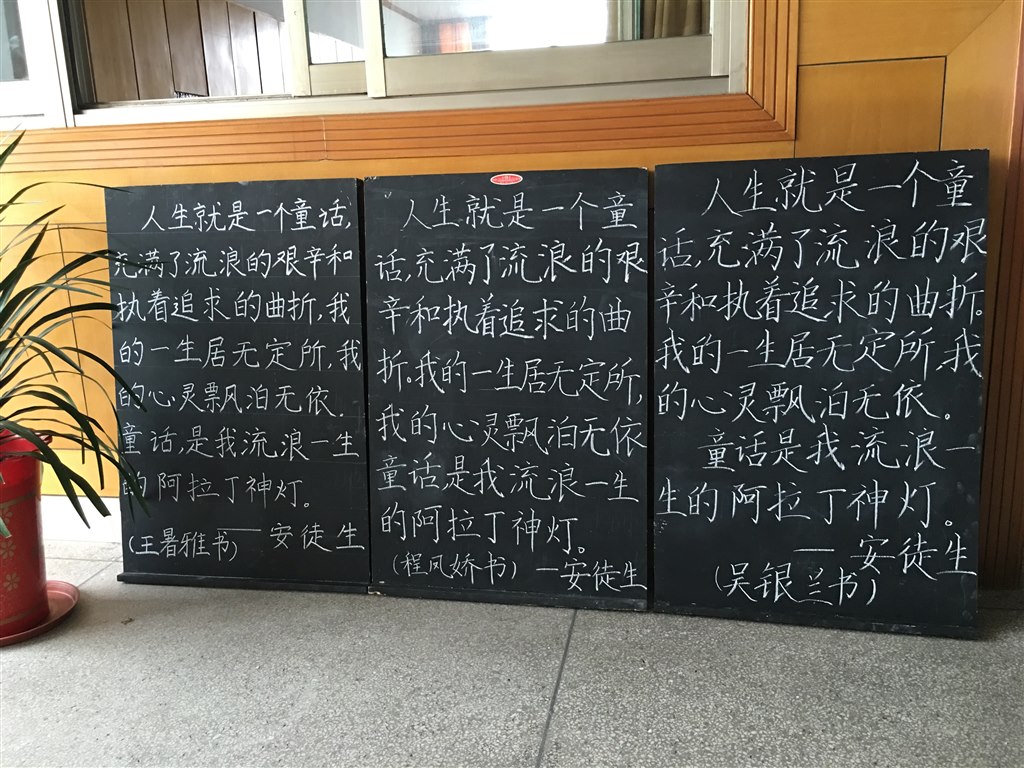 人生就是一个童话,
充满了流浪的艰辛和
执着追求的曲折,我
的一生居无定所,我
的心灵飘泊无依.
童话,是我流浪一生
的阿拉丁神灯。
——安徒生
(王暑雅书)
人生就是一个童
话,充满了流浪的艰
辛和执着追求的曲
折。我的一生居无定所,
我的心灵飘泊无依
童话是我流浪一生
的阿拉丁神灯。
(程凤娇书) —安徒生
人生就是一个童
话,充满了流浪的艰
辛和执着追求的曲折。
我的一生居无定所,我
的心灵飘泊无依。
童话是我流浪一
生的阿拉丁神灯。
—安徒生
(吴银兰书)